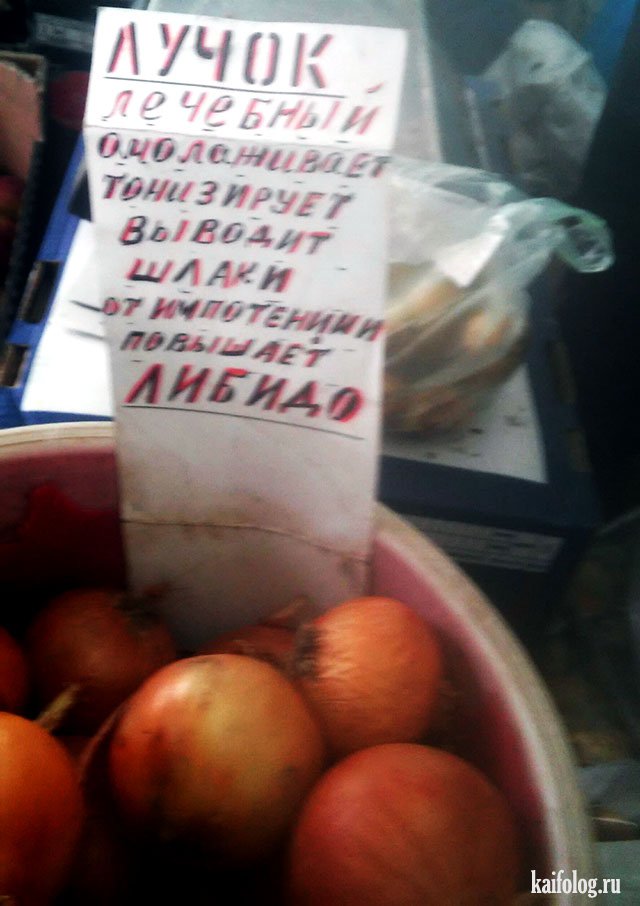 ЛУЧОК
ЛЕЧЕБНЫЙ
ОМОЛАЖИВАЕТ
ТОНИЗИРУЕТ
ВЫВОДИТ
ШЛАКИ
ОТ ИМПОТЕНЦИИ
ПОВЫШАЕТ
ЛИБИДО
kaifolog.ru